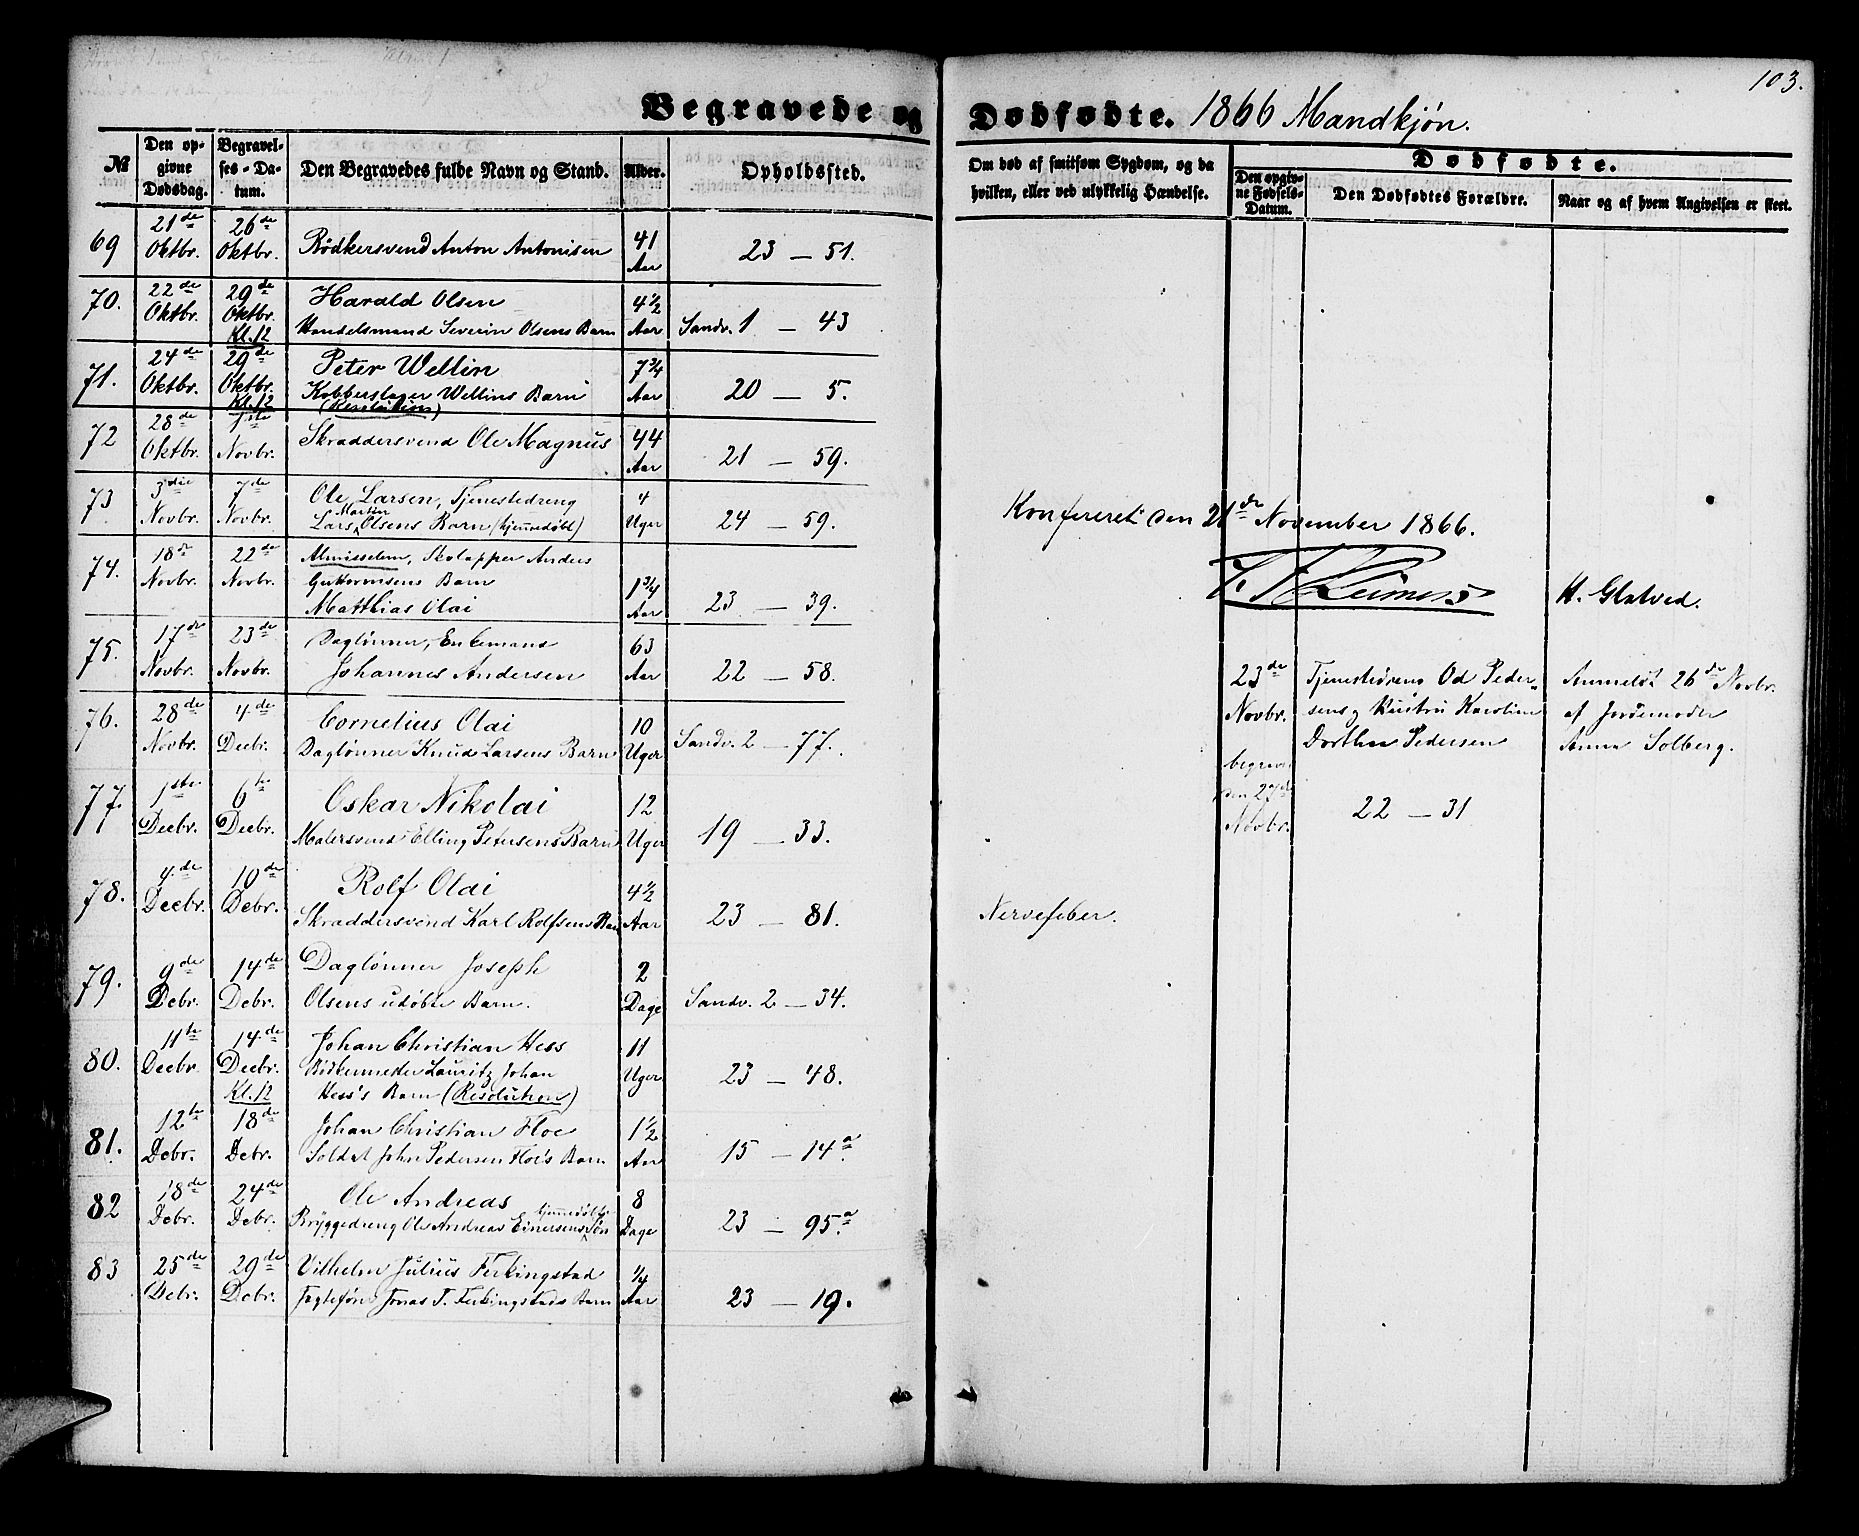 103.
Begravede og Dødfødte. 1866 Mandkjøn.
№ Den opgivne Dødsdag. Begravelses-Datum. Den Begravedes fulde Navn og Stand. Alder. Opholdssted.
Om død af smitsom Sygdom, og da hvilken, eller ved ulykkelig Hændelse.
Dødfødte.
Den opgivne Fødsels-Datum. Den Dødfødtes Forældre. Naar og af hvem Angivelsen er skeet.
69 21de Oktbr. 26de Oktbr. Bødkersvend Anton Antonisen 41 Aar 23 — 51.
70. 22de Oktbr. 29de Oktbr. Kl. 12 Harald Olsen
Handelsmand Severin Olsens Barn 4½ Aar Sandv. 1 — 43
71. 24de Oktbr. 29de Oktbr. Kl. 12 Peter Wellin
Kobberslager Wellins Barn 7¾ Aar 20 — 5.
(Resolution)
72 28de Oktbr. 1ste Novbr. Skraddersvend Ole Magnus 44 Aar 21 — 59.
73 3die Novbr. 7de Novbr. Ole Larsen, Tjenestedreng
Lars Martin Olsens Barn (hjemmedøbt) 4 Uger 24 — 59.
Konfereret den 21de November 1866.
74. 18de Novbr. 22de Novbr. Almisselem, Skolapper Anders
Guttormsens Barn
Matthias Olai 1¾ Aar 23 — 39.
H. Glatved.
75. 17de Novbr. 23de Novbr. Daglønner, Enkemand
Johannes Andersen 63 Aar 22 — 58.
23de Novbr. Tjenestedreng Od Pedersens
Hustru Karoline
Dorthea Pedersen
Anmeldt 26de Novbr.
af Jordemoder
Anna Solberg.
begravet den 27de Novbr. 22 — 31
76. 28de Novbr. 4de Decbr. Cornelius Olai
Daglønner Knud Larsens Barn 10 Uger Sandv. 2 — 77.
77. 1ste Decbr. 6te Decbr. Oskar Nikolai
Malersvend Elling Petersens Barn 12 Uger 19 — 33.
78. 4de Decbr. 10de Debr. Rolf Olai
Skraddersvend Karl Rolfsens Barn 4½ Aar 23 — 81. Nervefeber.
79. 9de Debr. 14de Debr. Daglønner Joseph
Olsens udøbte Barn. 2 Dage Sandv. 2 — 34.
80. 11te Decbr. 14de Decbr. Kl. 12 Johan Christian Hess
Bødkermester Lauritz Johan
Hess's Barn (Resolution) 11 Uger 23 — 48.
81. 12te Debr. 18de Debr. Johan Christian Floe
Soldat John Pedersen Floe's Barn 1½ Aar 15 — 14a.
82 18de Debr. 24de Debr. Ole Andreas
Bryggedreng Ole Andreas Einersens hjemmedøbte Søn 8 Dage 23 — 95a.
83 25de Debr. 29de Debr. Vilhelm Julius Ferkingstad
Jonas T. Ferkingstads Barn ¼ Aar 23 — 19.